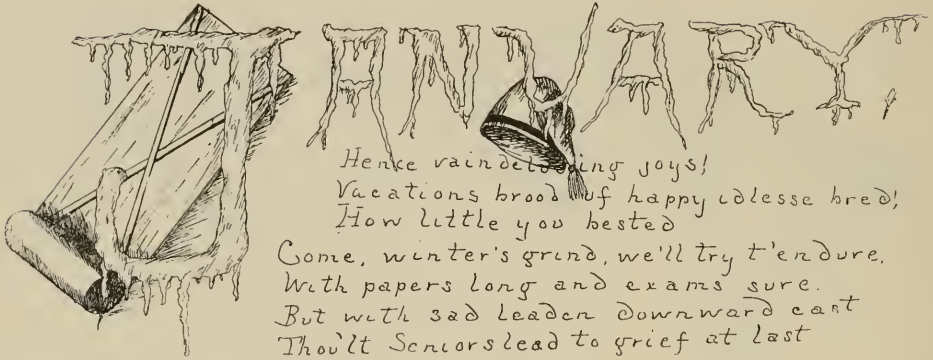 JANVARY.
Hence vain deluding joys!
Vacations brood of happy idlesse bred!
How little you bested
Come, winter's grind, we'll try t'endure,
With papers long and exams sure.
But with sad leaden downward cast
Thou'lt Seniors lead to grief at last